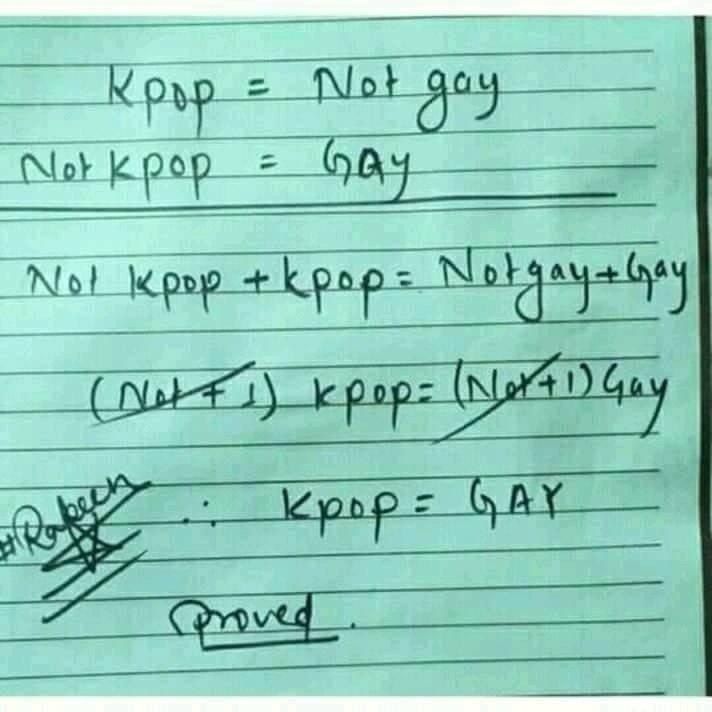 Kpop = Not gay
Not kpop = GAy
Not kpop + kpop = Not gay + Gay
(Not + 1) kpop = (Not + 1) Gay
∴ kpop = GAY
proved.